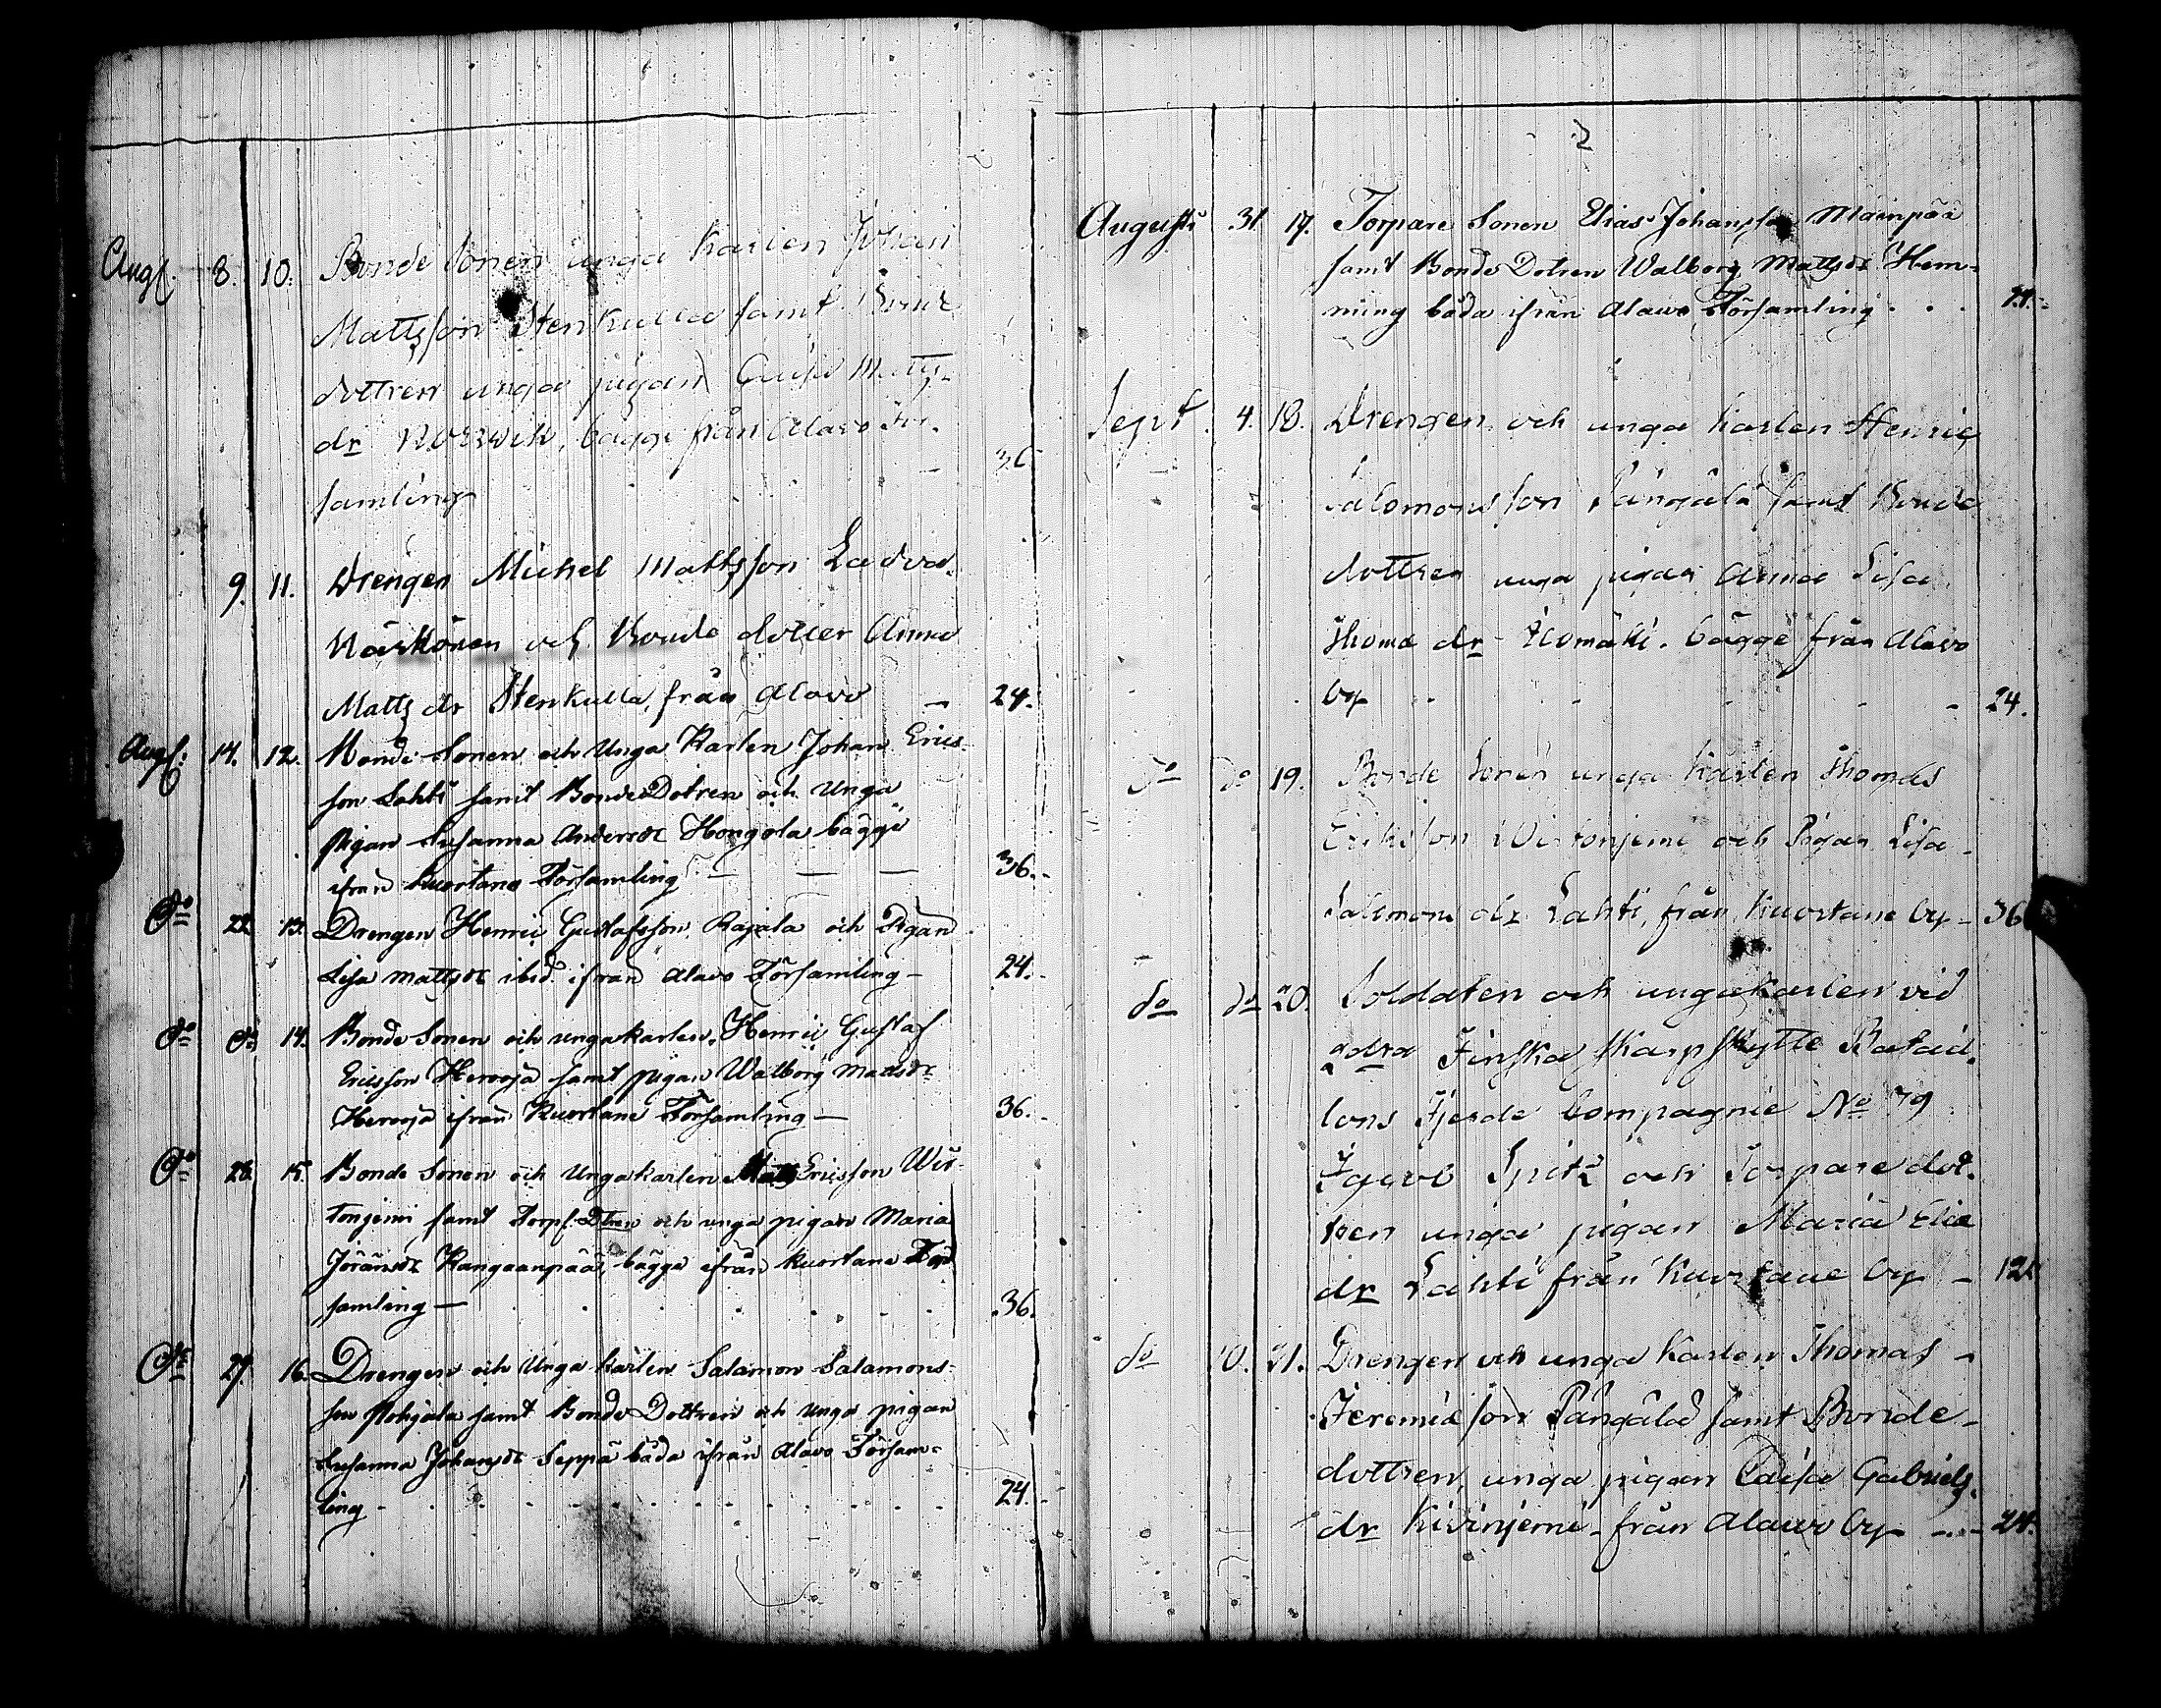 Augs. 8. 10. Bonde Sonen unga Karlen Johan
Mattsson Stenkulla samt Bonde
dottren unga pigan Caisa Matts
dr Norrwik, bägge från Alavo För-
samling 36.
9. 11. Drengen Michel Mattsson Ladva
Näykönen och Bonde dotter Anna
Matts dr Stenkulla, från Alavo — 24.
Augs: 14. 12. Bonde Sonen och Unga Karlen Johan Erics-
son Lahti samt Bonde Dotren och Unga
pigan Susanna Andersdr Hongola bägge
ifrån Kuortane Församling — — — 36.
do 22. 13. Drengen Henric Gustafsson Rajala och Pigan
Lisa Mattsdr ibid. ifrån Alavo Församling — 24.
do do 14. Bonde Sonen och ungakarlen Henric Gustaf
Ericsson Heroja samt pigan Walborg Madsdr
Heroja ifrån Kuortane Församling — 36.
do 28. 15. Bonde Sonen och Ungakarlen Matts Ericsson Wir-
tonjemi samt Torps. Dtren och unga pigan Maria
Jöransdr Kangaanpää, bägge ifrån Kuortane För
samling — 36.
do 29. 16. Drengen och Unga karlen Salamon Salamons-
son Pohjala samt Bonde Dottren och Unga pigan
Susanna Johansdr Seppä båda ifrån Alavo Försam-
ling - 24.
2
Augusti 31. 17. Torpare Sonen Elias Johansson Mäinpää
samt Bonde Dotren Walborg Mattsdr Hem-
ming båda ifrån Alavo Församling . . .
Sept. 4. 18. Drengen och unga karlen Henric
Salomonsson Pängälä samt Bonde
dottren unga pigan Anna Lisa
Thomæ dr Ilomäki. bägge från Alavo
by - 24.
do do 19. Bonde Sonen unga Karlen Thomas
Eriksson Wirtonjemi och Pigan Lisa
Salomons dr Lahti, från Kuortane by - 36
do do 20. Soldaten och ungekarlen vid
andra Finska Skarpskytte Batail-
lons Fjerde Compagnie No 79
Jacob Spitz och Torpare dot-
tren unga pigan Maria Eliæ
dr Lahti från Kuortane by - 12
do 10. 21. Drengen och unga Karlen Thomas -
Jeremiæson Pängälä samt Bonde-
dottren, unga pigan Caisa Gabriels
dr Kivinjemi - från Alavo by - 24.